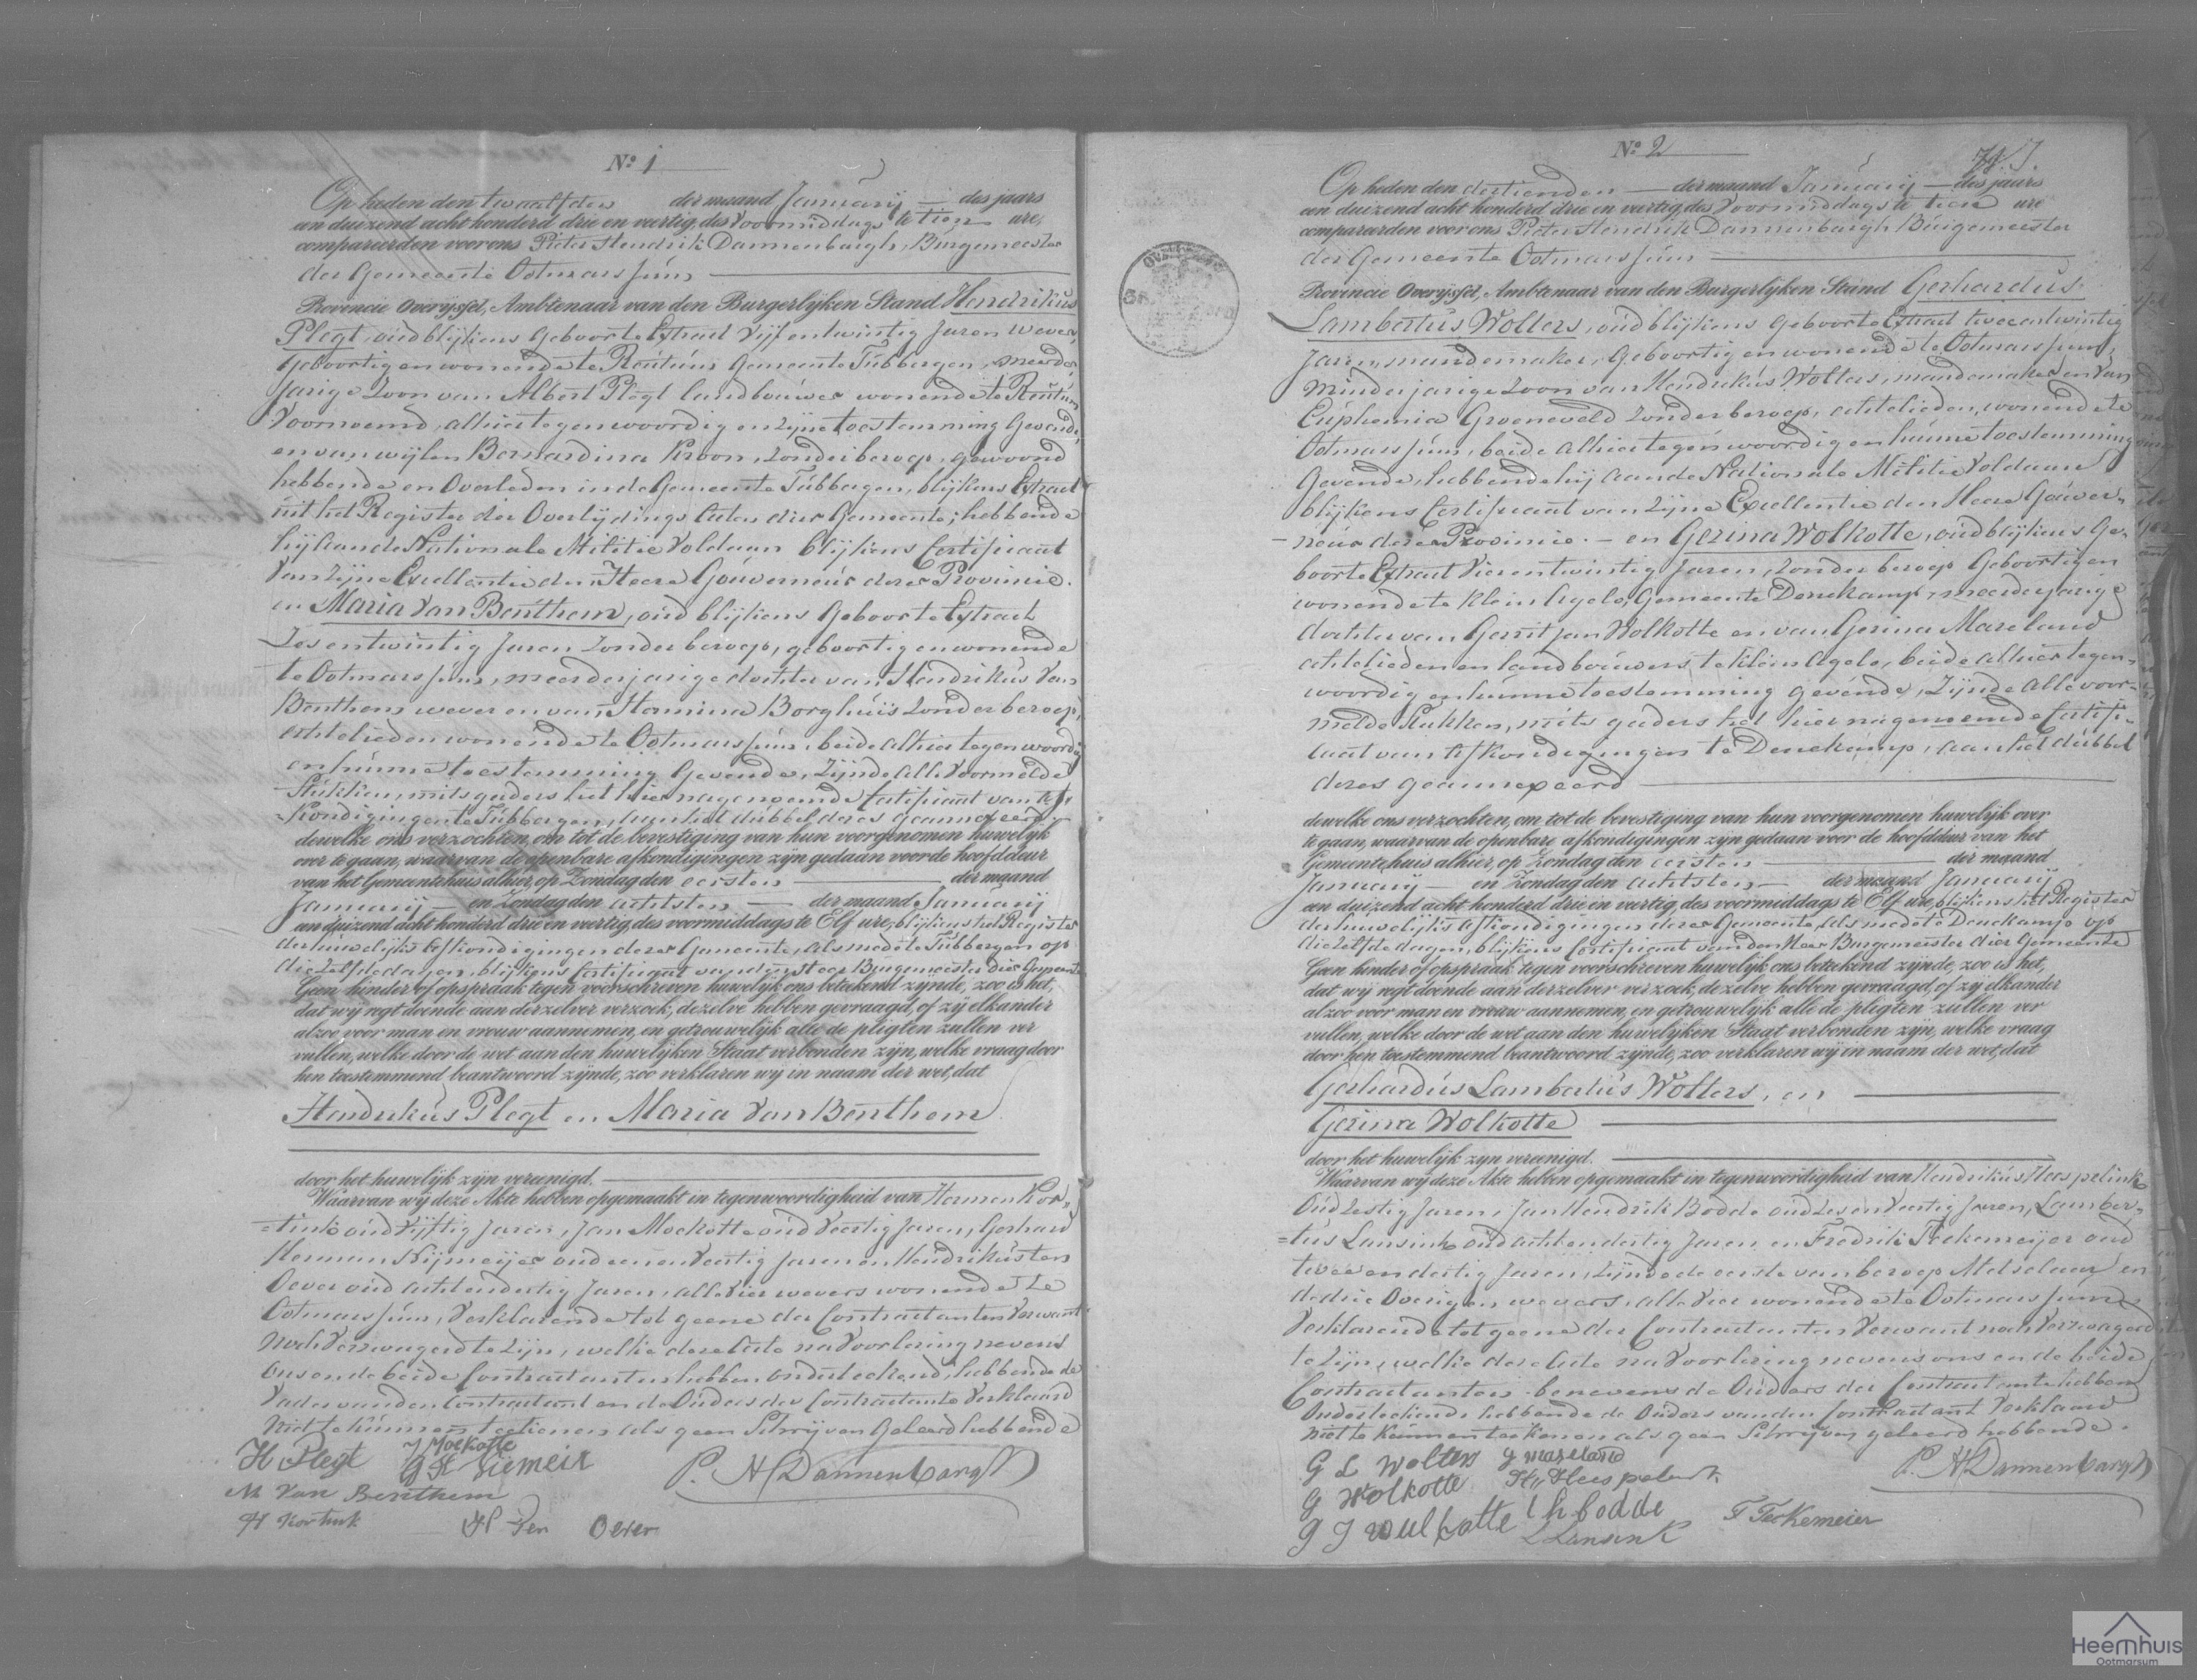 Nº 1
Op heden den twaalfden der maand Januarij des jaars
een duizend acht honderd drie en veertig, des Voormiddags te tien ure,
compareerden voor ons Pieter Hendrik Dannenbargh, Burgemeester
der Gemeente Ootmarssum,
Provincie Overijssel, Ambtenaar van den Burgerlijken Stand Hendrikus
Plegt, oud blijkens Geboorte Extract Vijf en twintig Jaren Wever,
Geboortig en wonende te Reutum Gemeente Tubbergen, meerder
jarige Zoon van Albert Plegt landbouwer wonende te Reutum
Voornoemd, alhier tegenwoordig en zijne toestemming Gevende,
en van wijlen Bernardina Kroon, Zonder beroep, gewoond
hebbende en Overleden in de Gemeente Tubbergen, blijkens Extract
uit het Register der Overlijdings Acten dier Gemeente; hebbende
hij aan de Nationale Militie Voldaan blijkens Certificaat
Van Zijne Excellentie den Heere Gouverneur dezer Provincie.
en Maria Van Benthem, oud blijkens Geboorte Extract
Zes en twintig Jaren Zonder beroep, geboortig en wonende
te Ootmarssum, meerderjarige dochter van Hendrikus Van
Benthem wever en van Hermina Borghuis Zonder beroep,
echtelieden wonende te Ootmarssum, beide alhier tegenwoordig
en hunne toestemming Gevende, Zijnde alle Voormelde
Stukken, mitsgaders het hier nagenoemde Certificaat van Af-
kondiging te Tubbergen, aan het dubbel dezes geannexeerd
dewelke ons verzochten, om tot de bevestiging van hun voorgenomen huwelijk
over te gaan, waarvan de openbare afkondigingen zijn gedaan voor de hoofddeur
van het Gemeentehuis alhier, op Zondag den eersten der maand
Januarij en Zondag den achtsten der maand Januarij
een duizend acht honderd drie en veertig, des voormiddags te Elf ure, blijkens het Register
der huwelijks Afkondigingen dezer Gemeente, als mede te Tubbergen op
die Zelfde dagen, blijkens Certificaat van den Heer Burgemeester dier Gemeente
Geen hinder of opspraak tegen voorschreven huwelijk ons betekend zijnde, zoo is het,
dat wij regt doende aan derzelver verzoek, dezelve hebben gevraagd, of zij elkander
alzoo voor man en vrouw aannemen, en getrouwelijk alle de pligten zullen ver
vullen, welke door de wet aan den huwelijken Staat verbonden zijn, welke vraag door
hen toestemmend beantwoord zijnde, zoo verklaren wij in naam der wet, dat
Hendrikus Plegt en Maria Van Benthem
door het huwelijk zijn vereenigd.
Waarvan wij deze Akte hebben opgemaakt in tegenwoordigheid van Hermen Kor-
=tink oud Vijftig Jaren, Jan Moekotte oud Veertig Jaren, Gerhard
Herman Nijmeijer oud een en Veertig Jaren en Hendrikus ten
Oever oud acht en dertig Jaren, alle Vier wevers wonende te
Ootmarssum, Verklarende tot geene der Contractanten Verwant
noch Verzwagerd te zijn, welke deze Acte na Voorlezing nevens
ons en de beide Contractanten hebben onderteekend, hebbende de
Vader van den Contractant en de Ouders der Contractante Verklaard
niet te kunnen teekenen als geen Schrijven Geleerd hebbende
H Plegt J Moekotte
G H Niemeir P. H Dannenbargh
M Van Benthem
H Kortink H Ten Oever
Nº 2
Op heden den dertienden der maand Januarij des jaars
een duizend acht honderd drie en veertig, des Voormiddags te tien ure
compareerden voor ons Pieter Hendrik Dannenbargh Burgemeester
der Gemeente Ootmarssum
Provincie Overijssel, Ambtenaar van den Burgerlijken Stand Gerhardus
Lambertus Wolters, oud blijkens Geboorte Extract twee en twintig
Jaren, mandemaker, Geboortig en wonende te Ootmarssum,
Minderjarige Zoon van Hendrikus Wolters, mandemaker en Van
Euphemia Groeneveld Zonder beroep, echtelieden, wonende te
Ootmarssum, beide alhier tegenwoordig en hunne toestemming
Gevende, hebbende hij aan de Nationale Militie Voldaan
blijkens Certificaat van Zijne Excellentie den Heere Gouver-
-neur dezer Provincie. - en Gezina Wolkotte, oud blijkens Ge-
boorte Extract Vier en twintig Jaren, Zonder beroep Geboortig en
wonende te Klein Agelo, Gemeente Denekamp, meerderjarige
dochter van Gerrit Jan Wolkotte en van Gezina Mareland
echtelieden en landbouwers te Klein Agelo, beide alhier tegen-
woordig en hunne toestemming gevende, Zijnde alle voor-
melde Stukken, mits gaders het hier nagenoemde Certifi-
caat van Afkondigingen te Denekamp, aan het dubbel
dezes geannexeerd
dewelke ons verzochten, om tot de bevestiging van hun voorgenomen huwelijk over
te gaan, waarvan de openbare afkondigingen zijn gedaan voor de hoofddeur van het
Gemeentehuis alhier, op Zondag den eersten der maand
Januarij en Zondag den achtsten der maand Januarij
een duizend acht honderd drie en veertig, des voormiddags te Elf ure, blijkens het Register
der huwelijks Afkondigingen dezer Gemeente, als mede te Denekamp op
die Zelfde dagen, blijkens Certificaat van den Heer Burgemeester dier Gemeente
Geen hinder of opspraak tegen voorschreven huwelijk ons betekend zijnde, zoo is het,
dat wij regt doende aan derzelver verzoek, dezelve hebben gevraagd, of zij elkander
alzoo voor man en vrouw aannemen, en getrouwelijk alle de pligten zullen ver
vullen, welke door de wet aan den huwelijken Staat verbonden zijn, welke vraag
door hen toestemmend beantwoord zijnde, zoo verklaren wij in naam der wet, dat
Gerhardus Lambertus Wolters, en
Gezina Wolkotte
door het huwelijk zijn vereenigd.
Waarvan wij deze Akte hebben opgemaakt in tegenwoordigheid van Hendrikus Heespelink
Oud Zestig Jaren, Jan Hendrik Bodde oud Zes en Veertig Jaren, Lamber-
=tus Lansink oud acht en dertig Jaren en Fredrik Terkemeijer oud
twee en dertig Jaren, Zijnde de eerste van beroep Metselaar en
de drie Overigen wevers, alle Vier wonende te Ootmarssum
Verklarende tot geene der Contractanten Verwant noch Verzwagerd
te Zijn, welke deze Acte na Voorlezing nevens ons en de beide
Contractanten benevens de Ouders der Contractante hebben
Onderteekend, hebbende de Ouders van den Contractant Verklaard
niet te kunnen teekenen als geen Schrijven geleerd hebbende.
G L Wolters G Mareland
G Wolkotte H, Heespelink P. H Dannenbargh
G J wulkotte I h bodde F Terkemeier
L Lansink
Heemhuis
Ootmarsum